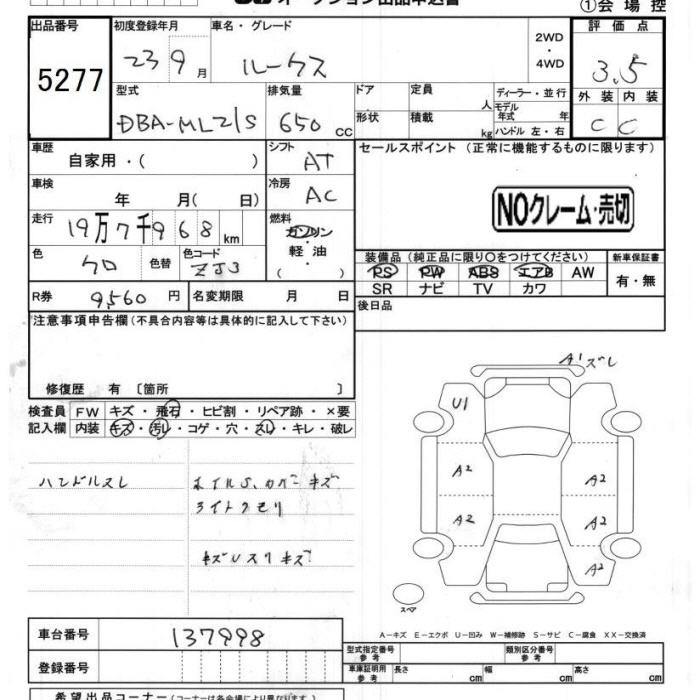 オークション出品申込書
①会場控
出品番号 初度登録年月 車名・グレード 2WD・4WD 評価点
5277 23 9月 ルークス 3.5
型式 排気量 ドア 定員 人 ディーラー・並行 外装 内装
DBA-ML21S 650 CC 形状 積載 kg モデル年式 年 ハンドル 左・右 C C
車歴 自家用・( ) シフト AT セールスポイント (正常に機能するものに限ります)
車検 年 月( 日) 冷房 AC
NOクレーム・売切
走行 19万7千968km 燃料 ガソリン・軽油 ( )
色 クロ 色替 色コード ZJ3
装備品 (純正品に限り○をつけてください) 新車保証書
PS PW ABS エアB AW 有・無
SR ナビ TV カワ
R券 9,560円 名変期限 月 日 後日品
注意事項申告欄(不具合内容等は具体的に記入して下さい)
修復歴 有 〔箇所 〕
検査員 FW キズ・飛石・ヒビ割・リペア跡・×要
記入欄 内装 キズ・汚レ・コゲ・穴・スレ・キレ・破レ
A1ズレ
U1
ハンドルスレ ホイルS、カバーキズ
ライトクモリ
A2 A2
A2 A2
A2
スペア
A−キズ E−エクボ U−凹み W−補修跡 S−サビ C−腐食 XX−交換済
車台番号 137998
登録番号
型式指定番号 参考 類別区分番号 参考
車庫証明用 参考 長さ cm 幅 cm 高さ cm
希望出品コーナー(コーナーは各会場により異なります)